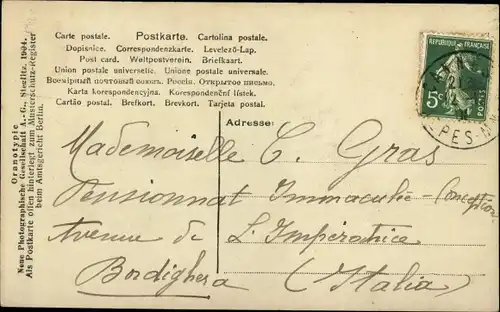 Carte postale. Postkarte. Cartolina postale.
Dopisnice. Correspondenzkarte. Levelező-Lap.
Post card. Weltpostverein. Briefkaart.
Union postale universelle. Unione postale universale.
Всемірный почтовый союзъ. Россія. Открытое письмо.
Karta korespondencyjna. Korespondenční lístek.
Cartão postal. Brefkort. Brevkort. Tarjeta postal.
REPUBLIQUE FRANÇAISE
5c
POSTES
PES-M
Adresse:
Mademoiselle C. Gras
Pensionnat Immaculée-Conception
Avenue de L'Impératrice
Bordighera (Italia)
Oranotypie
Neue Photographische Gesellschaft A.-G., Steglitz. 1904.
Als Postkarte offen hinterlegt zum Musterschutz-Register
beim Amtsgericht Berlin.